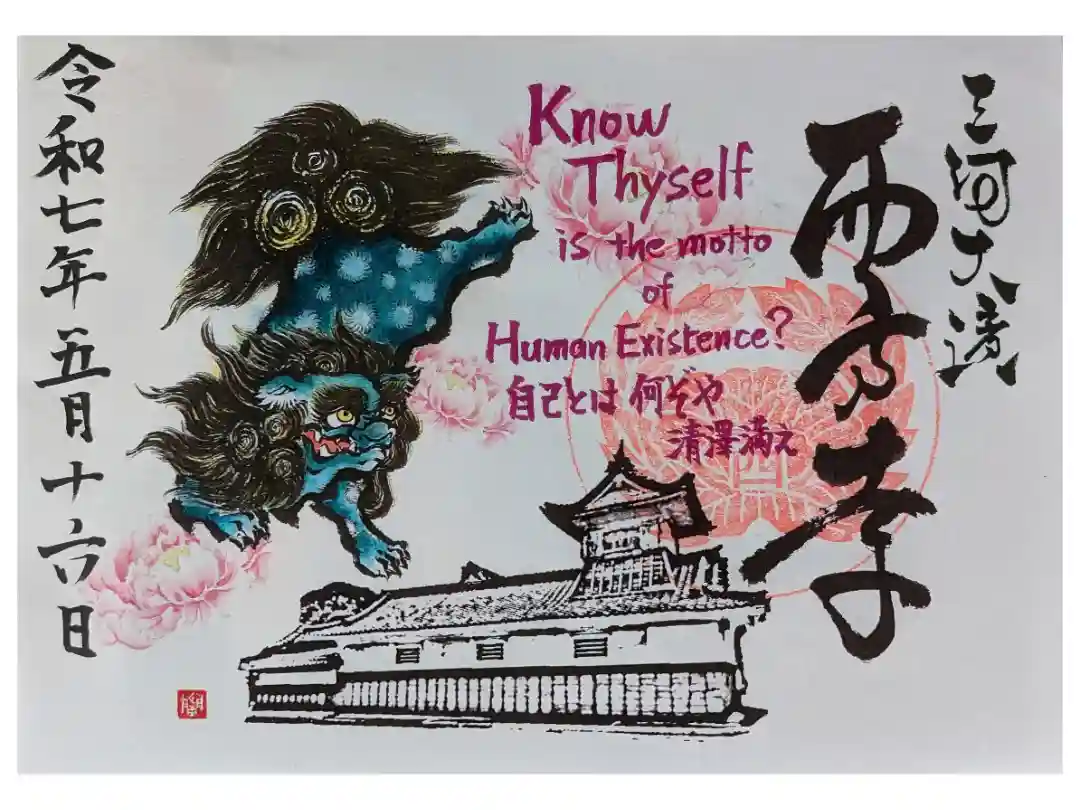 三河大濱
西方寺
Know
Thyself
is the motto
of
Human Existence?
自己とは何ぞや
清澤満之
令和七年五月十六日